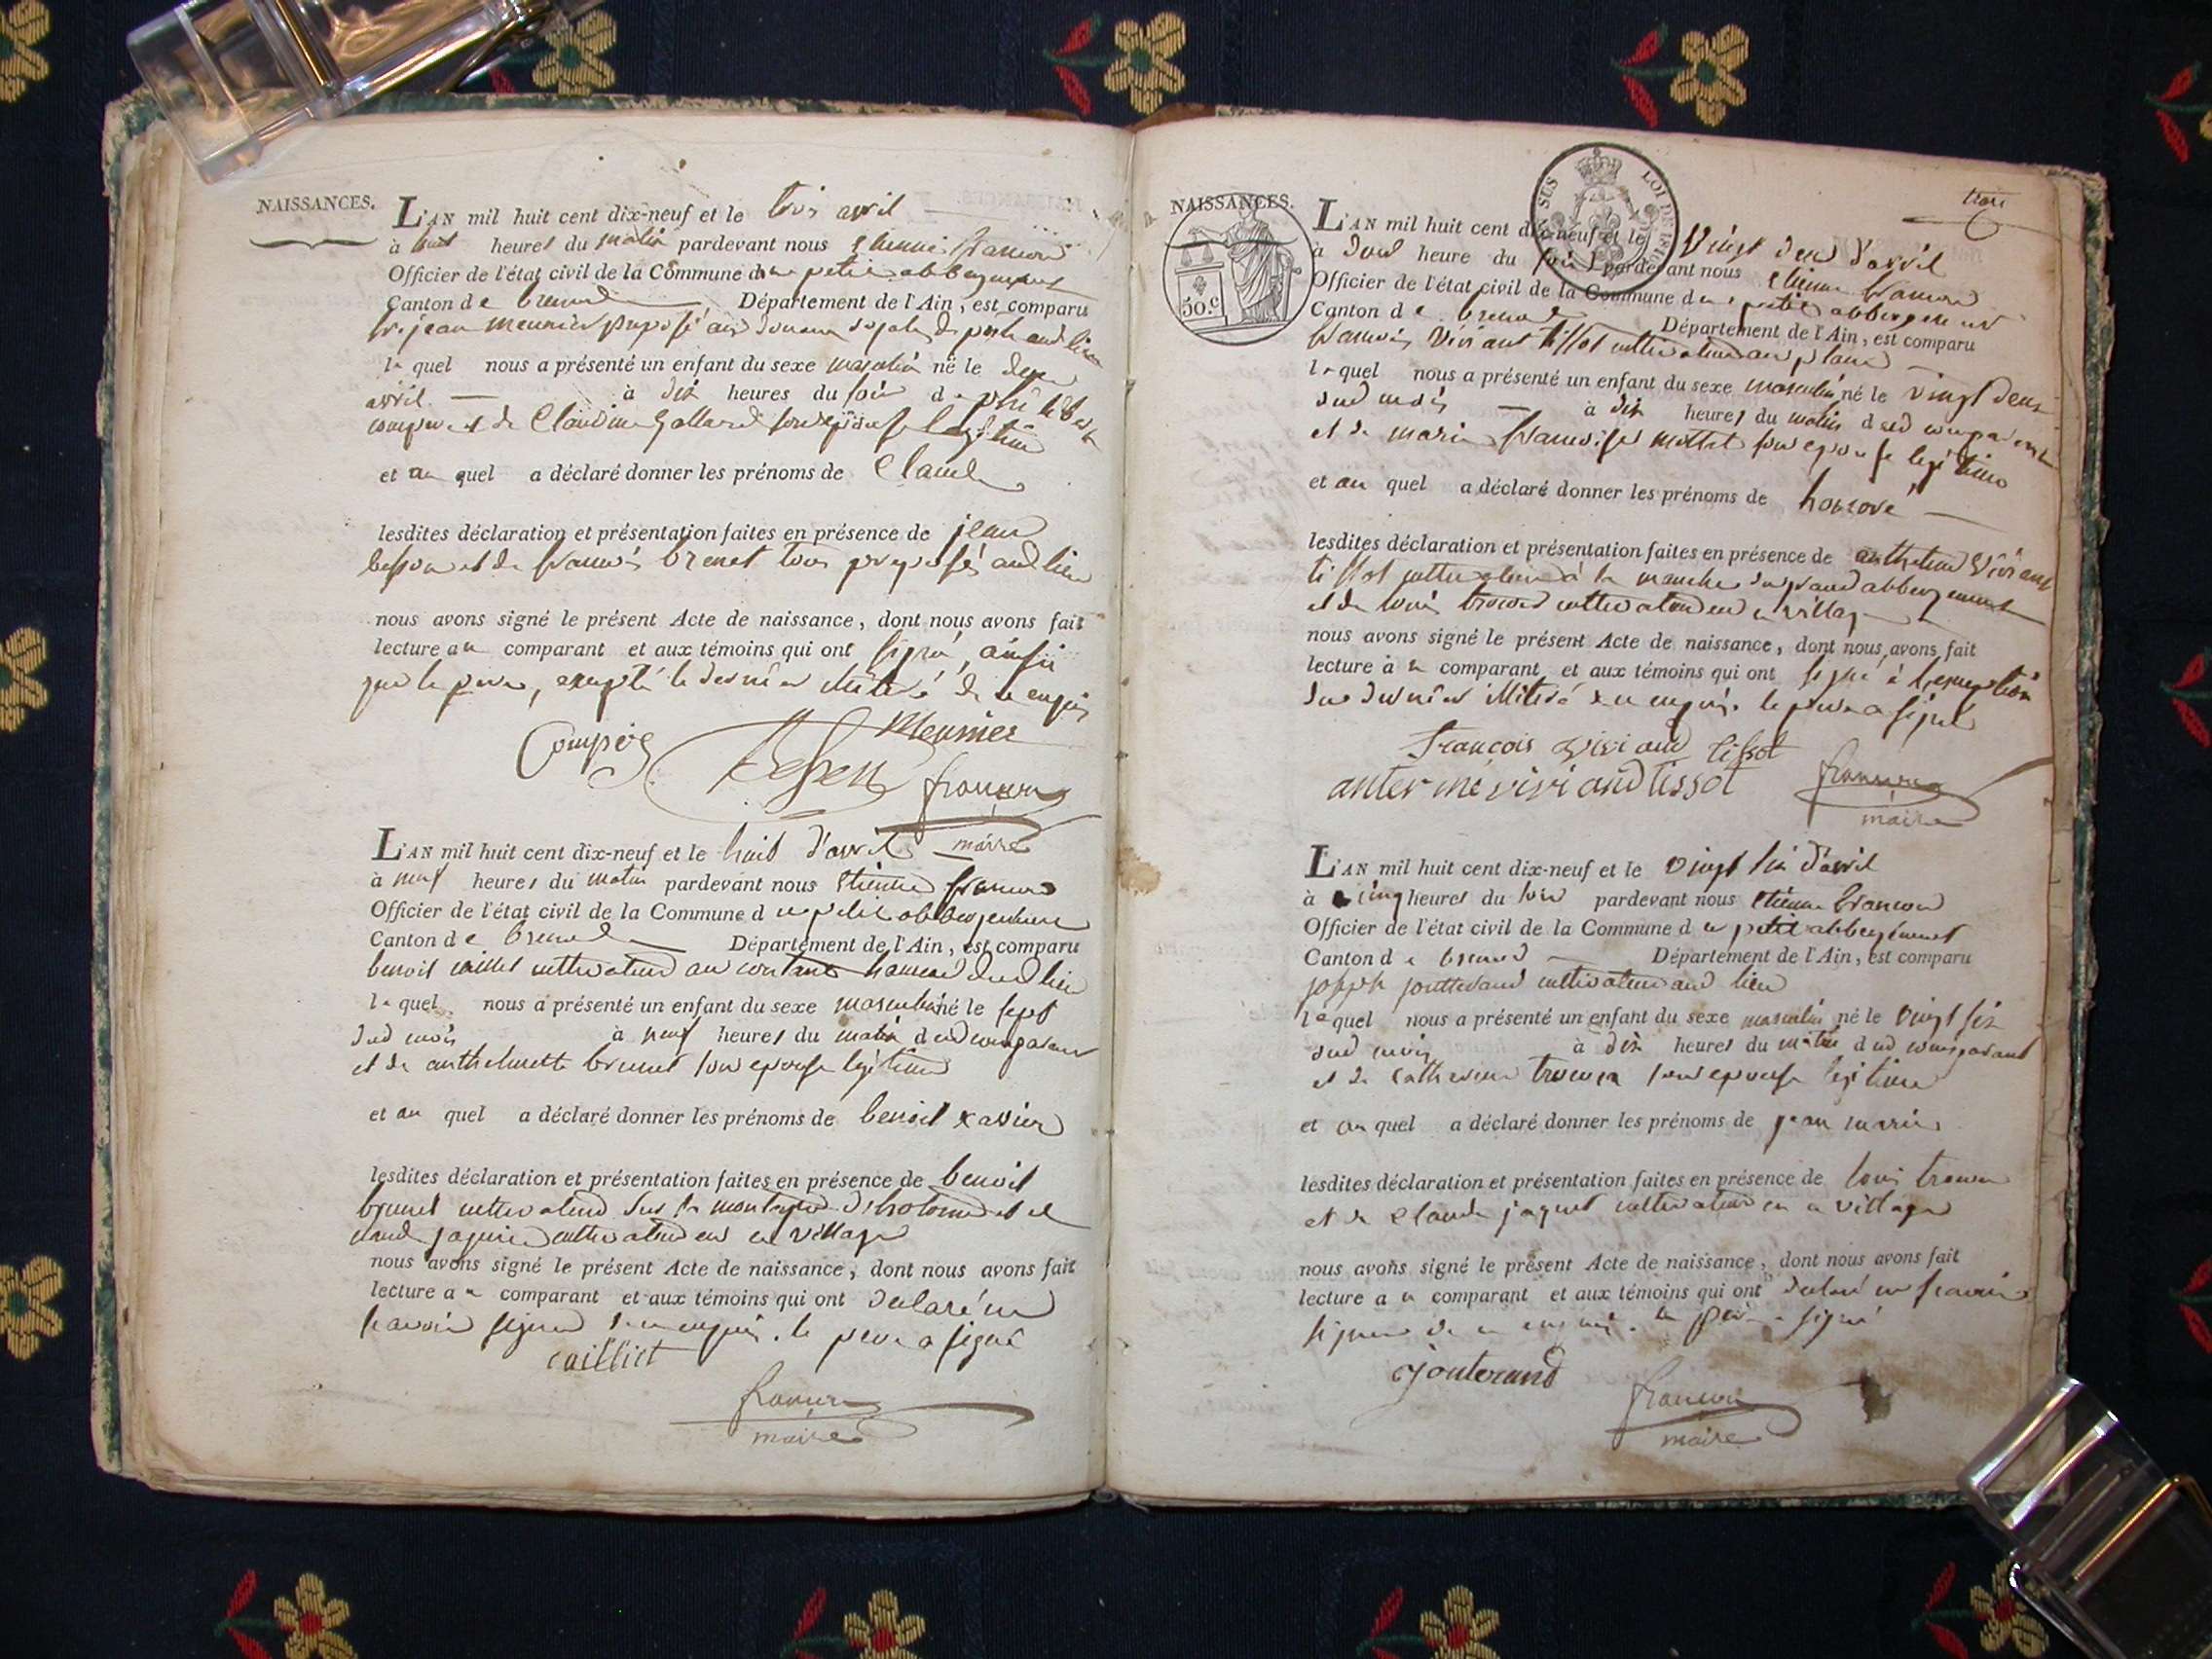 NAISSANCES.
L'AN mil huit cent dix-neuf et le trois avril
à huit heures du matin pardevant nous etienne francon
Officier de l'état civil de la Commune du petit abbergement
Canton de brenod Département de l'Ain, est comparu
jean meunier preposé aux douanes
le quel nous a présenté un enfant du sexe masculin né le deux
avril à dix heures du soir de philibert
et de Claudine Golland son epouse legitime
et au quel a déclaré donner les prénoms de Claude
lesdites déclaration et présentation faites en présence de jean
besson et de francois brenet tous preposés aud lieu
nous avons signé le présent Acte de naissance, dont nous avons fait
lecture au comparant et aux témoins qui ont signé, ainsi
que le pere, excepté le dernier illiteré de ce enquis
Meunier
francon
maire
L'AN mil huit cent dix-neuf et le huit d'avril
à neuf heures du matin pardevant nous etienne francon
Officier de l'état civil de la Commune du petit abbergement
Canton de brenod Département de l'Ain, est comparu
benoit cultivateur au hameau dud lieu
le quel nous a présenté un enfant du sexe masculin né le sept
dud mois à neuf heures du matin dud comparant
et de anthelmette brunet son epouse legitime
et au quel a déclaré donner les prénoms de benoit xavier
lesdites déclaration et présentation faites en présence de benoit
brunet cultivateur sur la montagne d'hotonne et de
cultivateur en ce village
nous avons signé le présent Acte de naissance, dont nous avons fait
lecture au comparant et aux témoins qui ont declaré ne
savoir signer de ce enquis. le pere a signé
cailliet
francon
maire
trois
NAISSANCES.
50.c
EN SUS LOI DE 1816
L'AN mil huit cent dix-neuf et le vingt deux d'avril
à heure du soir pardevant nous etienne francon
Officier de l'état civil de la Commune du petit abbergement
Canton de brenod Département de l'Ain, est comparu
francois viviant tissot cultivateur au
le quel nous a présenté un enfant du sexe masculin né le vingt deux
dud mois à dix heures du matin dud comparant
et de marie francoise mottet son epouse legitime
et au quel a déclaré donner les prénoms de honoré
lesdites déclaration et présentation faites en présence de anthelme viviant
tissot cultivateur à la manche du grand abbergement
et de louis cultivateur en ce village
nous avons signé le présent Acte de naissance, dont nous avons fait
lecture à ce comparant et aux témoins qui ont signé à l'exception
du dernier illiteré de ce enquis. le pere a signé
francois viviand tissot
antermé viviand tissot
francon
maire
L'AN mil huit cent dix-neuf et le vingt six d'avril
à cinq heures du soir pardevant nous etienne francon
Officier de l'état civil de la Commune du petit abbergement
Canton de brenod Département de l'Ain, est comparu
joseph jontterand cultivateur aud lieu
le quel nous a présenté un enfant du sexe masculin né le vingt six
dud mois à dix heures du matin dud comparant
et de catherine son epouse legitime
et au quel a déclaré donner les prénoms de jean marie
lesdites déclaration et présentation faites en présence de louis
et de Claude jaquet cultivateur en ce village
nous avons signé le présent Acte de naissance, dont nous avons fait
lecture au comparant et aux témoins qui ont declaré ne savoir
signer de ce enquis. le pere a signé
jonterand
francon
maire